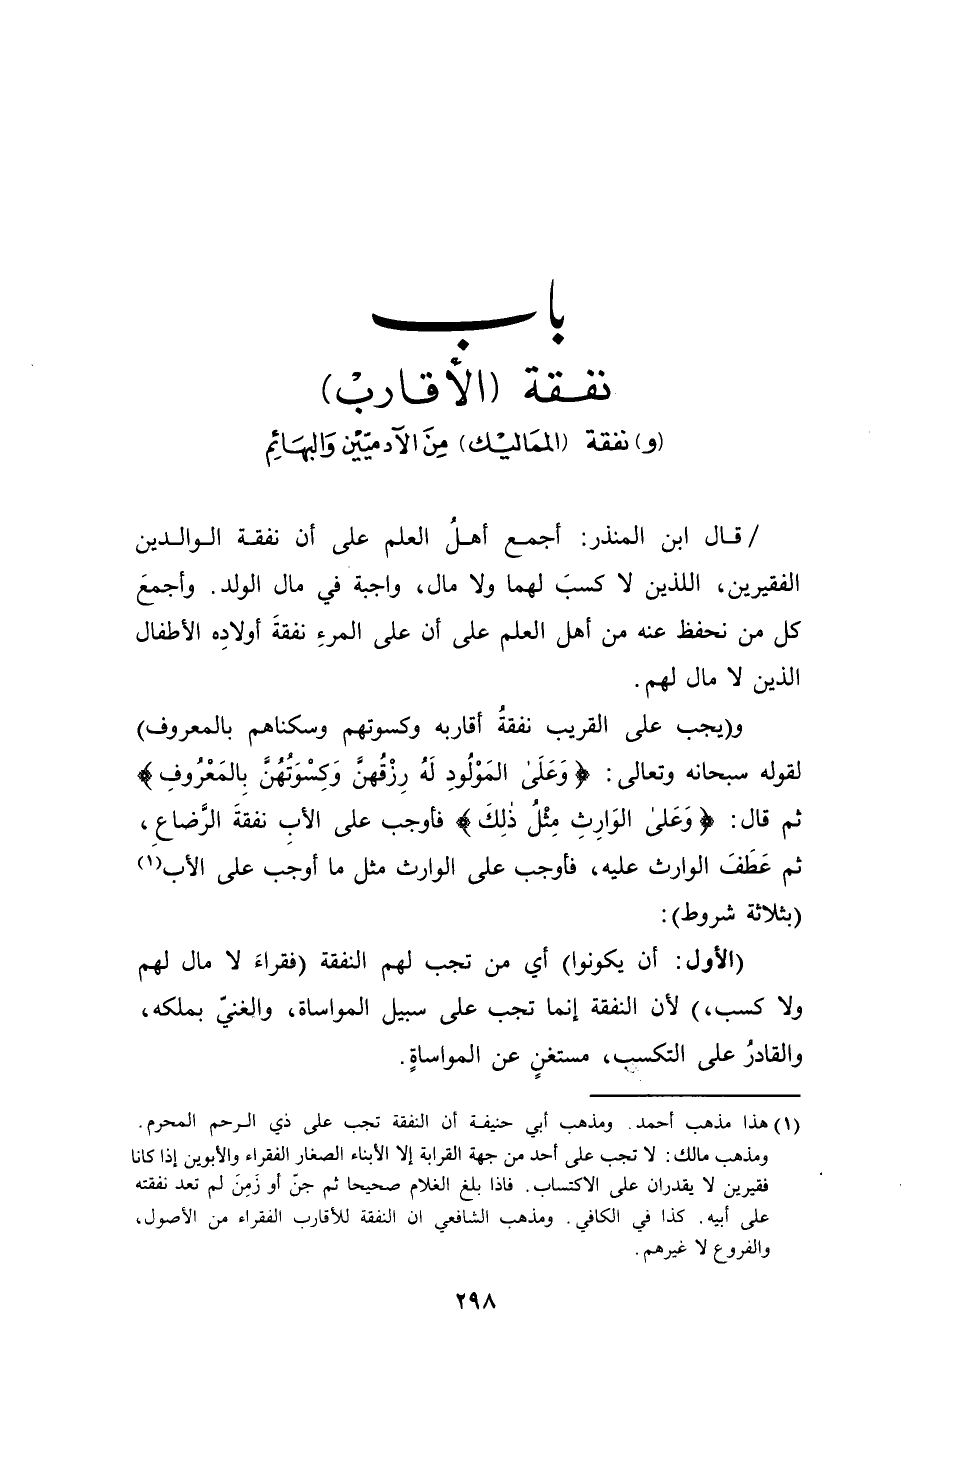 باب
نفقة (الأقارب)
(و) نفقة (المماليك) من الآدميين والبهائم
/ قال ابن المنذر: أجمع أهلُ العلم على أن نفقة الوالدين
الفقيرين، اللذين لا كسبَ لهما ولا مال، واجبة في مال الولد. وأجمعَ
كل من نحفظ عنه من أهل العلم على أن على المرءِ نفقةَ أولادِه الأطفال
الذين لا مال لهم.
و(يجب على القريب نفقةُ أقاربه وكسوتهم وسكناهم بالمعروف)
لقوله سبحانه وتعالى: ﴿وَعَلَىٰ المَوْلُودِ لَهُ رِزْقُهنَّ وَكِسْوَتُهُنَّ بِالمَعْرُوفِ﴾
ثم قال: ﴿وَعَلىٰ الوَارِثِ مِثْلُ ذٰلِكَ﴾ فأوجب على الأبِ نفقةَ الرَّضاعِ،
ثم عَطَفَ الوارث عليه، فأوجب على الوارث مثل ما أوجب على الأب(١)
(بثلاثة شروط):
(الأول: أن يكونوا) أي من تجب لهم النفقة (فقراءَ لا مال لهم
ولا كسب،) لأن النفقة إنما تجب على سبيل المواساة، والغنيّ بملكه،
والقادرُ على التكسب، مستغنٍ عن المواساةِ.
(١) هذا مذهب أحمد. ومذهب أبي حنيفة أن النفقة تجب على ذي الرحم المحرم.
ومذهب مالك: لا تجب على أحد من جهة القرابة إلا الأبناء الصغار الفقراء والأبوين إذا كانا
فقيرين لا يقدران على الاكتساب. فاذا بلغ الغلام صحيحا ثم جنّ أو زَمِنَ لم تعد نفقته
على أبيه. كذا في الكافي. ومذهب الشافعي ان النفقة للأقارب الفقراء من الأصول،
والفروع لا غيرهم.
٢٩٨